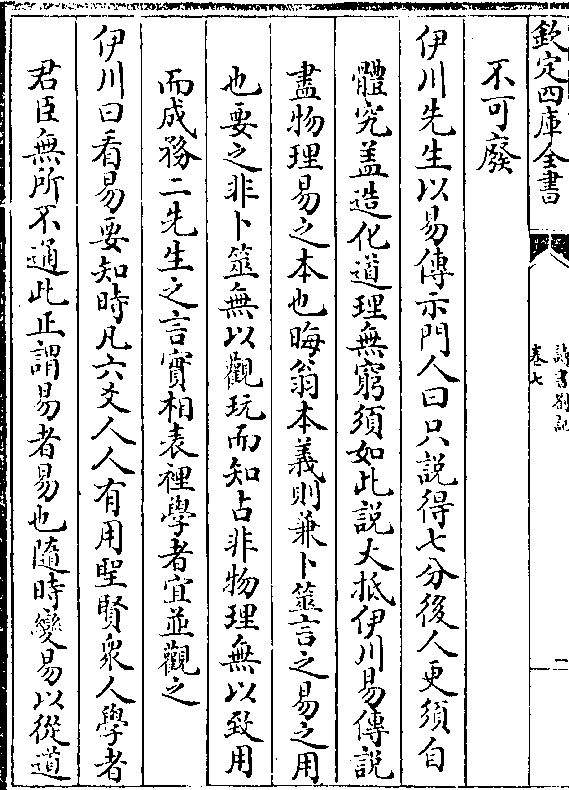 欽定四庫全書
讀書劄記
卷七
二
不可廢
伊川先生以易傳示門人曰只說得七分後人更須自
體究盖造化道理無窮須如此說大抵伊川易傳說
盡物理易之本也晦翁本義則兼卜筮言之易之用
也要之非卜筮無以觀玩而知占非物理無以致用
而成務二先生之言實相表裡學者宜並觀之
伊川曰看易要知時凡六爻人人有用聖賢衆人學者
君臣無所不通此正謂易者易也隨時變易以從道